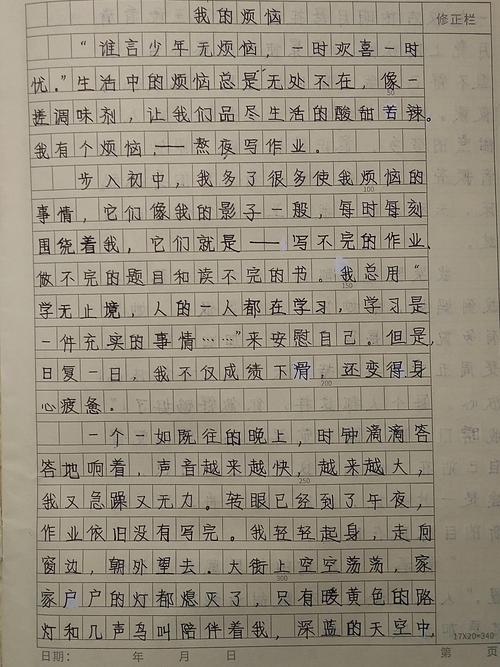 我的烦恼
修正栏
“谁言少年无烦恼，一时欢喜一时
忧。”生活中的烦恼总是无处不在，像一
50
搓调味剂，让我们品尽生活的酸甜苦辣。
我有个烦恼，——熬夜写作业。
步入初中，我多了很多使我烦恼的
100
事情，它们像我的影子一般，每时每刻
围绕着我，它们就是——写不完的作业、
做不完的题目和读不完的书。我总用“
150
学无止境，人的一人都在学习，学习是
一件充实的事情……”来安慰自己。但是，
日复一日，我不仅成绩下滑，还变得身
200
心疲惫。
一个一如既往的晚上，时钟滴滴答
答地响着，声音越来越快，越来越大，
250
我又急躁又无力。转眼已经到了午夜，
作业依旧没有写完。我轻轻起身，走向
窗边，朝外望去。大街上空空荡荡，家
300
家户户的灯都熄灭了，只有暖黄色的路
灯和几声鸟叫陪伴着我，深蓝的天空中
17X20=340
日期： 年 月 日 第 页